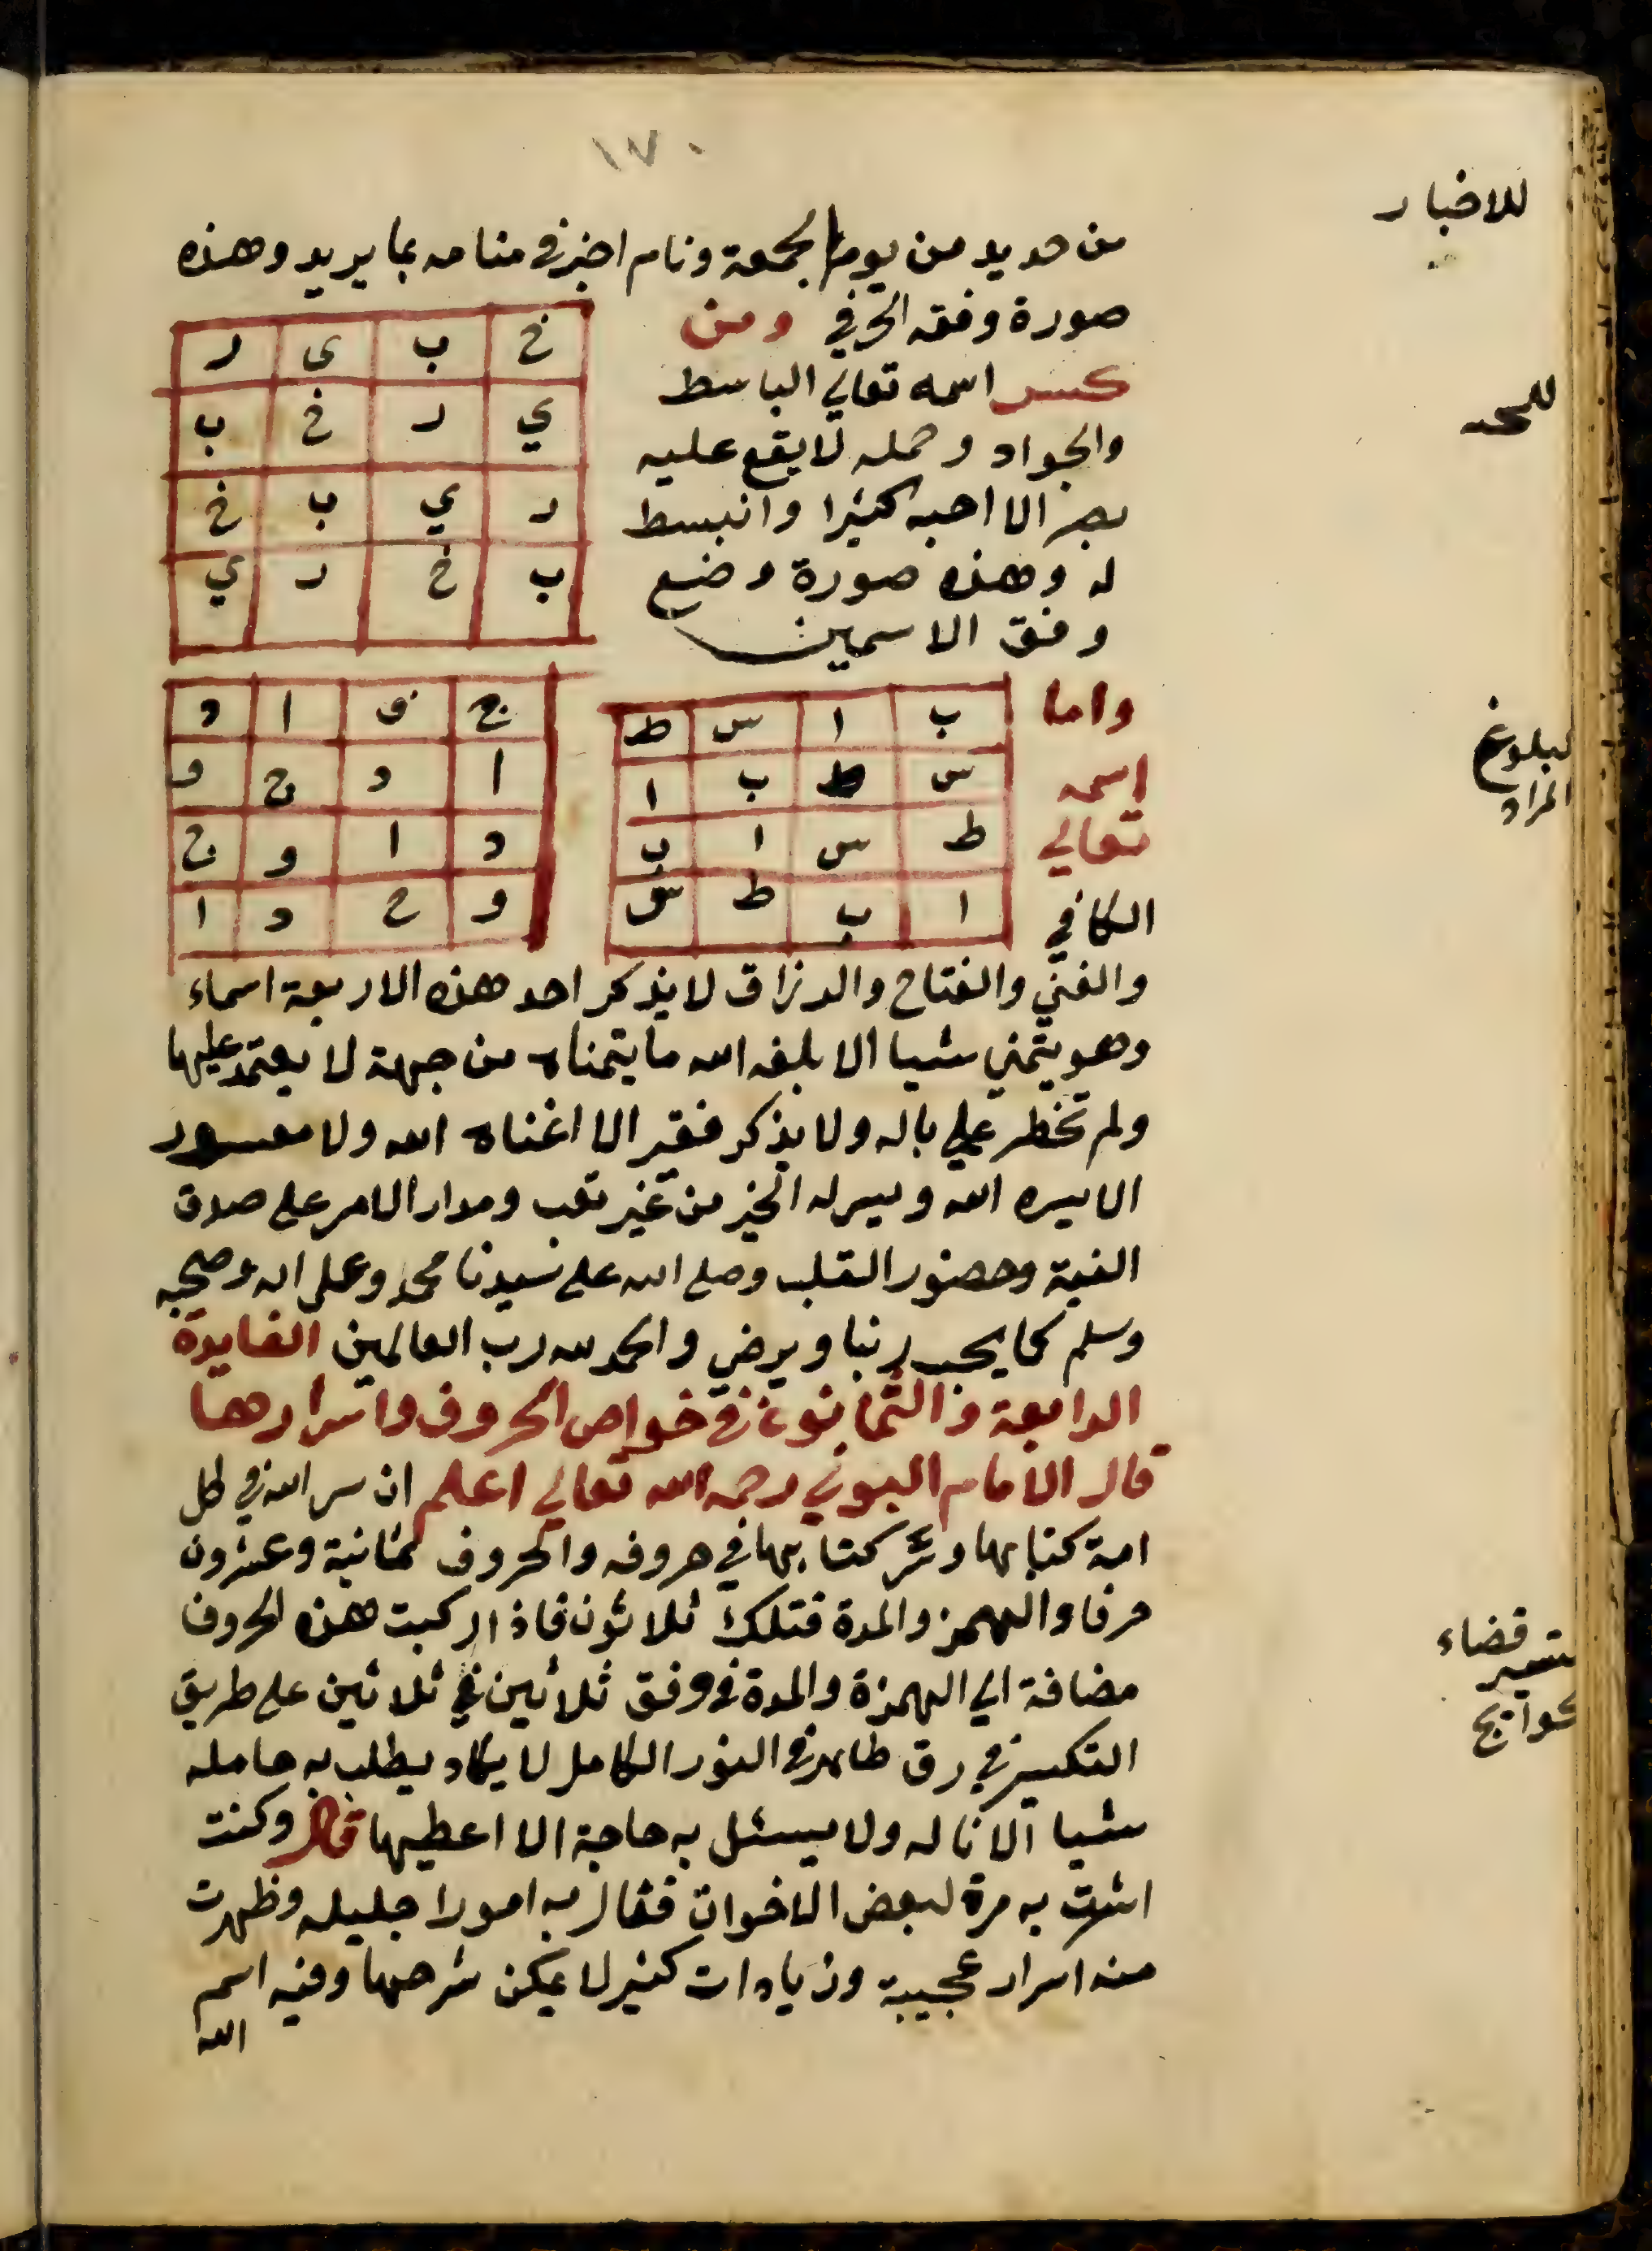 ١٧٠
للاخبار
من حديد من يوم الجمعة ونام اخبر في منامه بما يريد وهذه
صورة وفقه الحرفي ومن
خ ب ى ر
ي ر خ ب
ر ي ب خ
ب خ ر ي
كسر اسمه تعالي الباسط
للمحبه
والجواد وحمله لا يقع عليه
بصر الا احبه كثيرا وانبسط
له وهذه صورة وضع
وفق الاسمين
واما
اسمه
تعالي
الكافي
ب ا س ط
س ط ب ا
ط س ا ب
ا ب ط س
ج و ا د
ا د ج و
د ا و ج
و ج د ا
لبلوغ
المراد
والغني والفتاح والرزاق لا يذكر احد هذه الاربعة اسماء
وهو يتمني شيا الا بلغه الله ما يتمناه من جهة لا يعتمد عليها
ولم تخطر علي باله ولا يذكر فقير الا اغناه الله ولا معسور
الا يسره الله ويسر له الخير من غير تعب ومدار الامر على صدق
النية وحضور القلب وصلى الله على سيدنا محمد وعلى اله وصحبه
وسلم كما يحب ربنا ويرضي والحمد لله رب العالمين الفايدة
الرابعة والثمانون في خواص الحروف واسرارها
قال الامام البوني رحمه الله تعالي اعلم ان سر الله في كل
امة كتابها وسر كتابها في حروفه والحروف ثمانية وعشرون
حرفا والهمز والمدة فتلك ثلاثون فاذا ركبت هذه الحروف
تيسير قضاء
الحوايج
مضافة الي الهمزة والمدة في وفق ثلاثين في ثلاثين على طريق
التكسير في رق طاهر في النور الكامل لا يكاد يطلب به حامله
شيا الا ناله ولا يسئل به حاجة الا اعطيها قال وكنت
اشرت به مرة لبعض الاخوان فنال به امورا جليله وظهرت
منه اسرار عجيبة وزيادات كثير لا يمكن شرحها وفيه اسم
الله